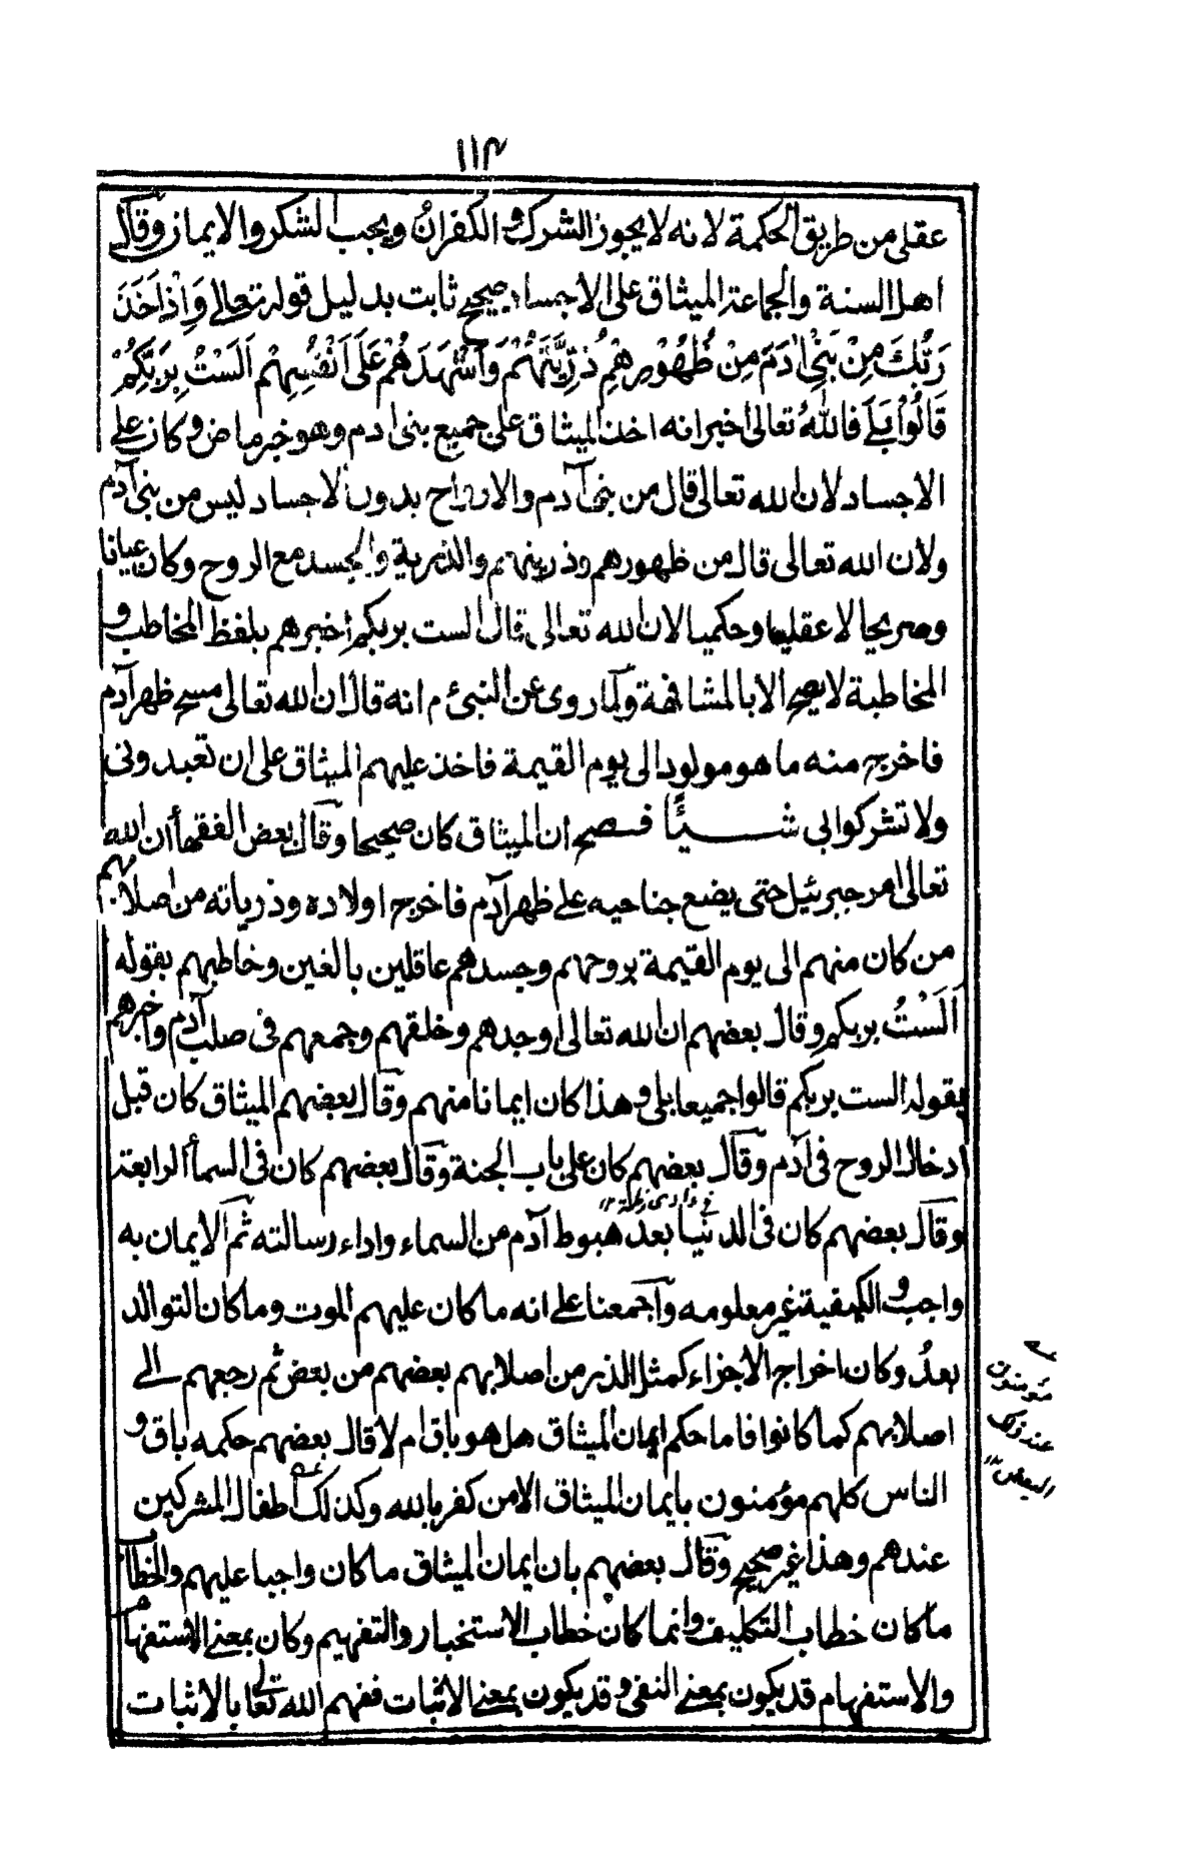 ١١٣
عقلی من طريق الحكمة لانه لا يجوز الشرك و الكفران ويجب الشكر والايمان وقال
اهل السنة والجماعة الميثاق على الاجساد صحيح ثابت بدليل قوله تعالى وَاِذْ اَخَذَ
رَبُّكَ مِنْ بَنِيْ اٰدَمَ مِنْ ظُهُوْرِهِمْ ذُرِّيَّتَهُمْ وَاَشْهَدَهُمْ عَلَى اَنْفُسِهِمْ اَلَسْتُ بِرَبِّكُمْ
قَالُوْا بَلٰى فاللهُ تعالى اخبر انه اخذ الميثاق على جميع بنى ادم وهو خبر ماض وكان على
الاجساد لان الله تعالى قال من بنى آدم والارواح بدون الاجساد ليس من بنى آدم
ولأن الله تعالى قال من ظهورهم وذريتهم والذرية والجسد مع الروح وكان عيانا
وصريحا لا عقليا وحكميا لان الله تعالى قال الست بربكم أخبرهم بلفظ المخاطب و
المخاطبة لا يصح الا بالمشافهة ولما روى عن النبىء م انه قال ان الله تعالى مسح ظهر آدم
فاخرج منه ما هو مولود الى يوم القيمة فاخذ عليهم الميثاق على ان تعبدونى
ولا تشركوا بى شيئًا فصح ان الميثاق كان صحيحا وقال بعض الفقهاء أن الله
تعالى امر جبرئيل حتى يضع جناحيه على ظهر آدم فاخرج اولاده وذرياته من اصلابهم
من كان منهم الى يوم القيمة بروحهم وجسدهم عاقلين بالغين وخاطبهم بقوله
اَلَسْتُ بربكم وقال بعضهم ان الله تعالى اوجدهم وخلقهم وجمعهم فى صلب آدم واخبرهم
بقوله الست بربكم قالوا جميعا بلى وهذا كان ايمانا منهم وقال بعضهم الميثاق كان قبل
ادخال الروح فى آدم وقال بعضهم كان على باب الجنة وقال بعضهم كان فى السمأ الرابعة
وقال بعضهم كان فى الدنيا بعد هبوط آدم من السماء واداء رسالته ثم الايمان به
واجب و الكيفية غير معلومه واجمعنا على انه ما كان عليهم الموت وما كان التوالد
بعدُ وكان اخراج الاجزاء كمثل الذر من اصلابهم بعضهم من بعض ثم رجعهم الى
اصلابهم كما كانوا فاما حكم ايمان الميثاق هل هو باق ام لا قال بعضهم حكمه باق و
الناس كلهم مؤمنون بايمان الميثاق الا من كفر بالله وكذلك اطفال المشركين
مؤمنون
عند ذلك
البعض
عندهم وهذا غير صحيح وقال بعضهم بان ايمان الميثاق ما كان واجبا عليهم والخطاب
ما كان خطاب التكليف وانما كان خطاب الاستخبار والتفهيم وكان بمعنى الاستفهام
والاستفهام قد يكون بمعنى النفى وقد يكون بمعنى الاثبات ففهم الله تعالى بالاثبات